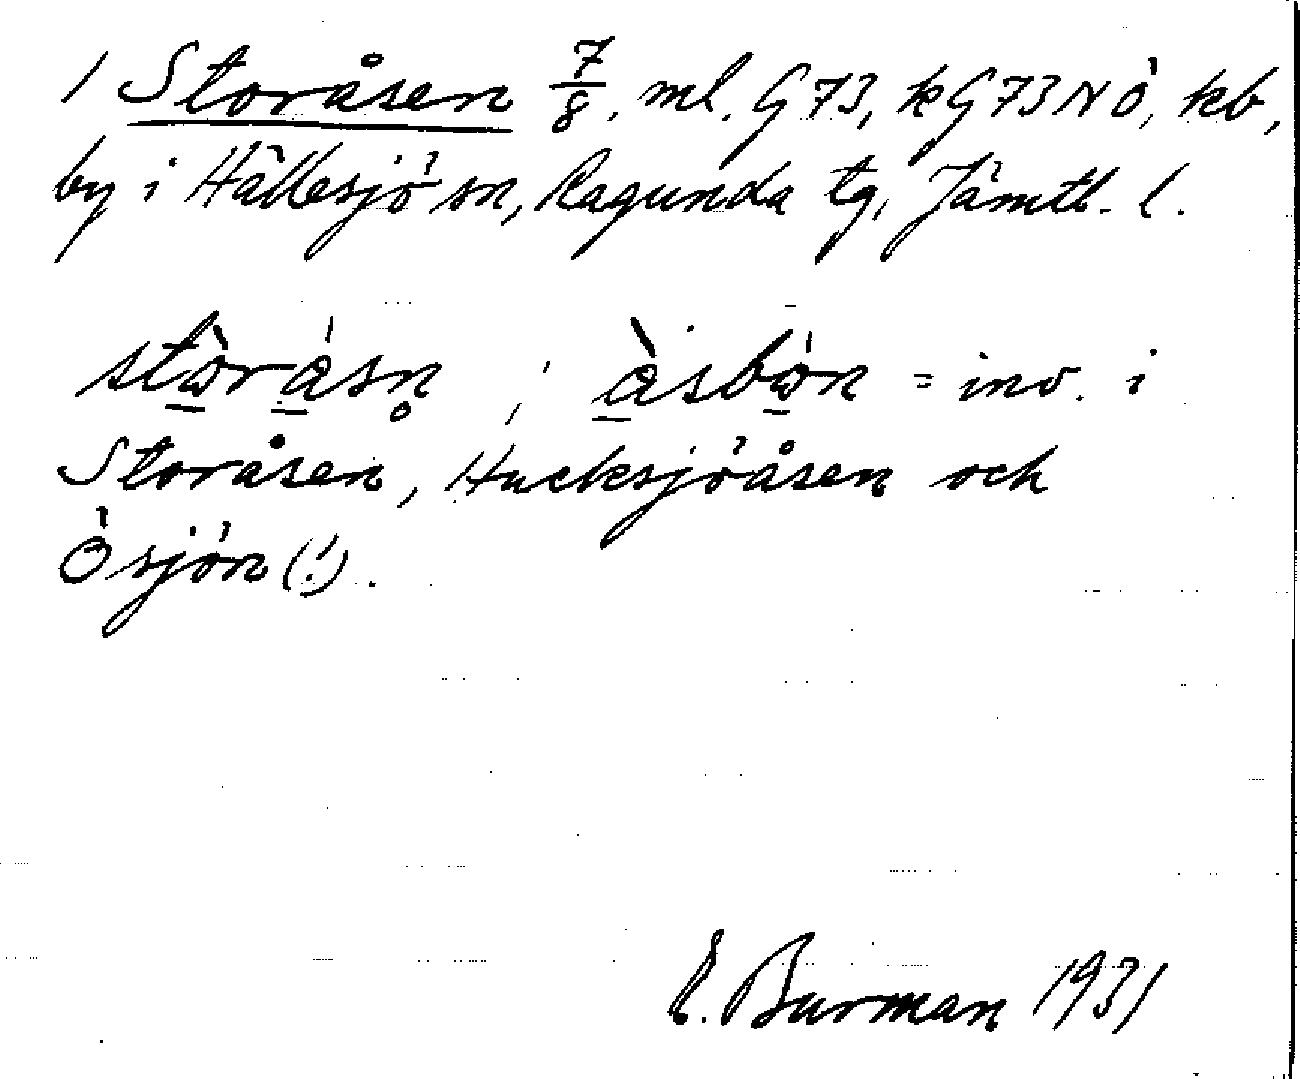 1 Storåsen 7/8, ml. G 73, kG 73 NÖ, kb,
by i Hällesjö sn, Ragunda tg, Jämtl. l.
stòrásn̥ ; àsbón = inv. i
Storåsen, Hucksjöåsen och
Ösjön (!).
E. Burman 1931